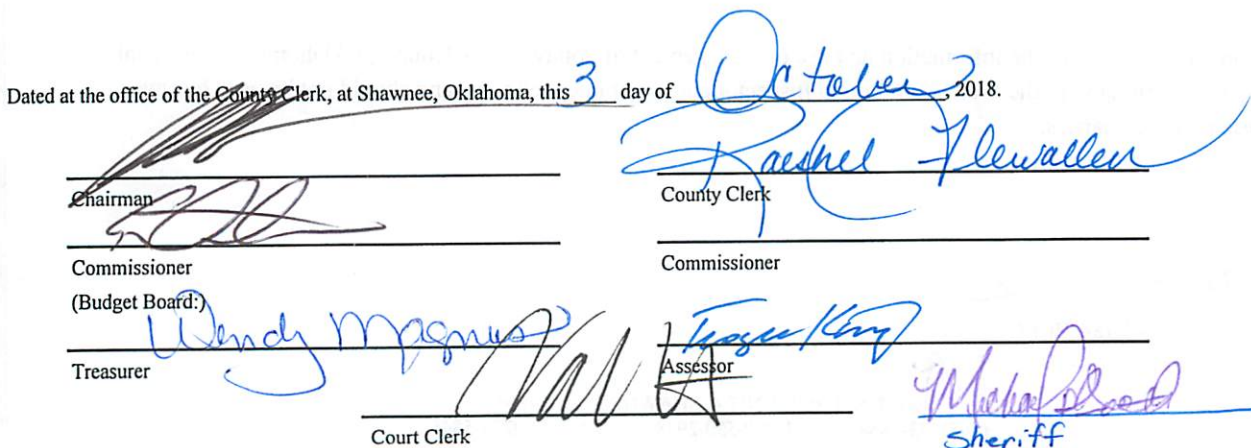 Dated at the office of the County Clerk, at Shawnee, Oklahoma, this 3 day of October, 2018.
Raeshel Flewallen
Chairman County Clerk
Commissioner Commissioner
(Budget Board:)
Wendy Magnus
Treasurer Assessor
Court Clerk Sheriff